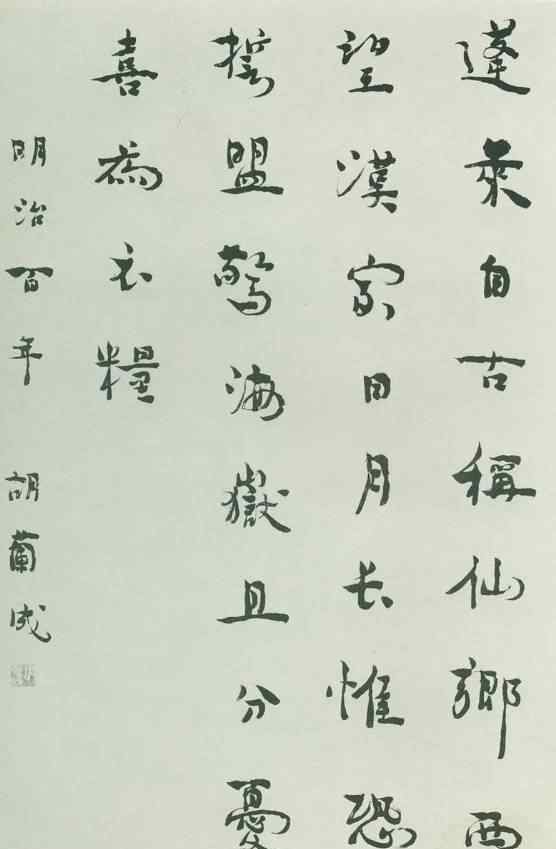 蓬萊自古稱仙鄉西
望漢家日月長惟恐
誓盟驚海嶽且分憂
喜為衣糧
明治百年 胡蘭成